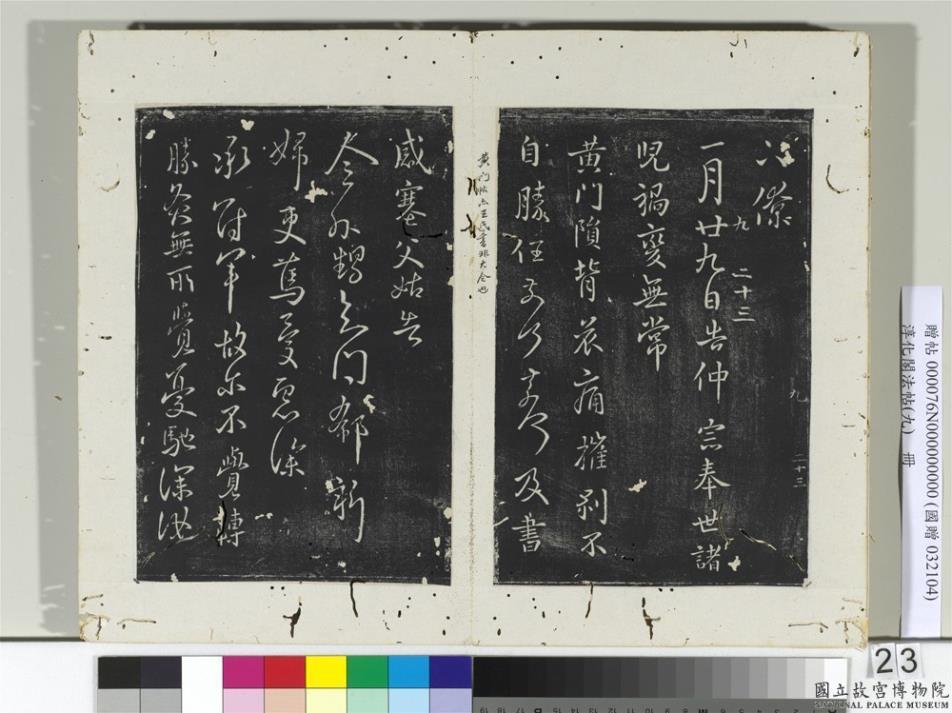 九
二十三
一月廿九日告仲宗奉世諸
兒禍變無常
黃門隕背哀痛摧剥不
自勝任奈何奈何及書
感塞父姑告
郗新
婦更篤憂慮深
承軍故爾不覺轉
勝灸無所覺憂馳深汝
九
二十三
黃門帖亦王氏書非大令也
贈帖 000076N000000000 (國贈 032104)
淳化閣法帖(九) 冊
23
國立故宮博物院
NATIONAL PALACE MUSEUM